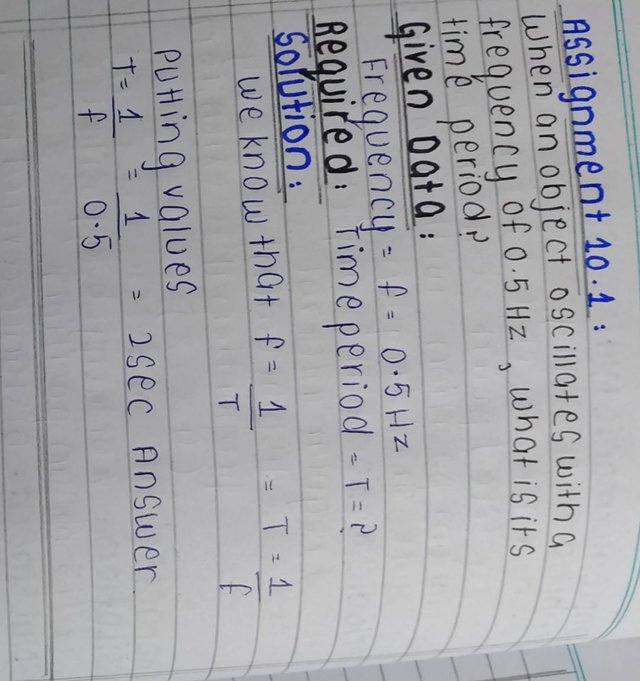 Assignment 10.1:
When an object oscillates with a
frequency of 0.5 Hz, what is its
time period?
Given Data:
Frequency = f = 0.5 Hz
Required: Time period = T = ?
Solution:
We know that f = 1/T = T = 1/f
Putting values
T = 1/f = 1/0.5 = 2sec Answer